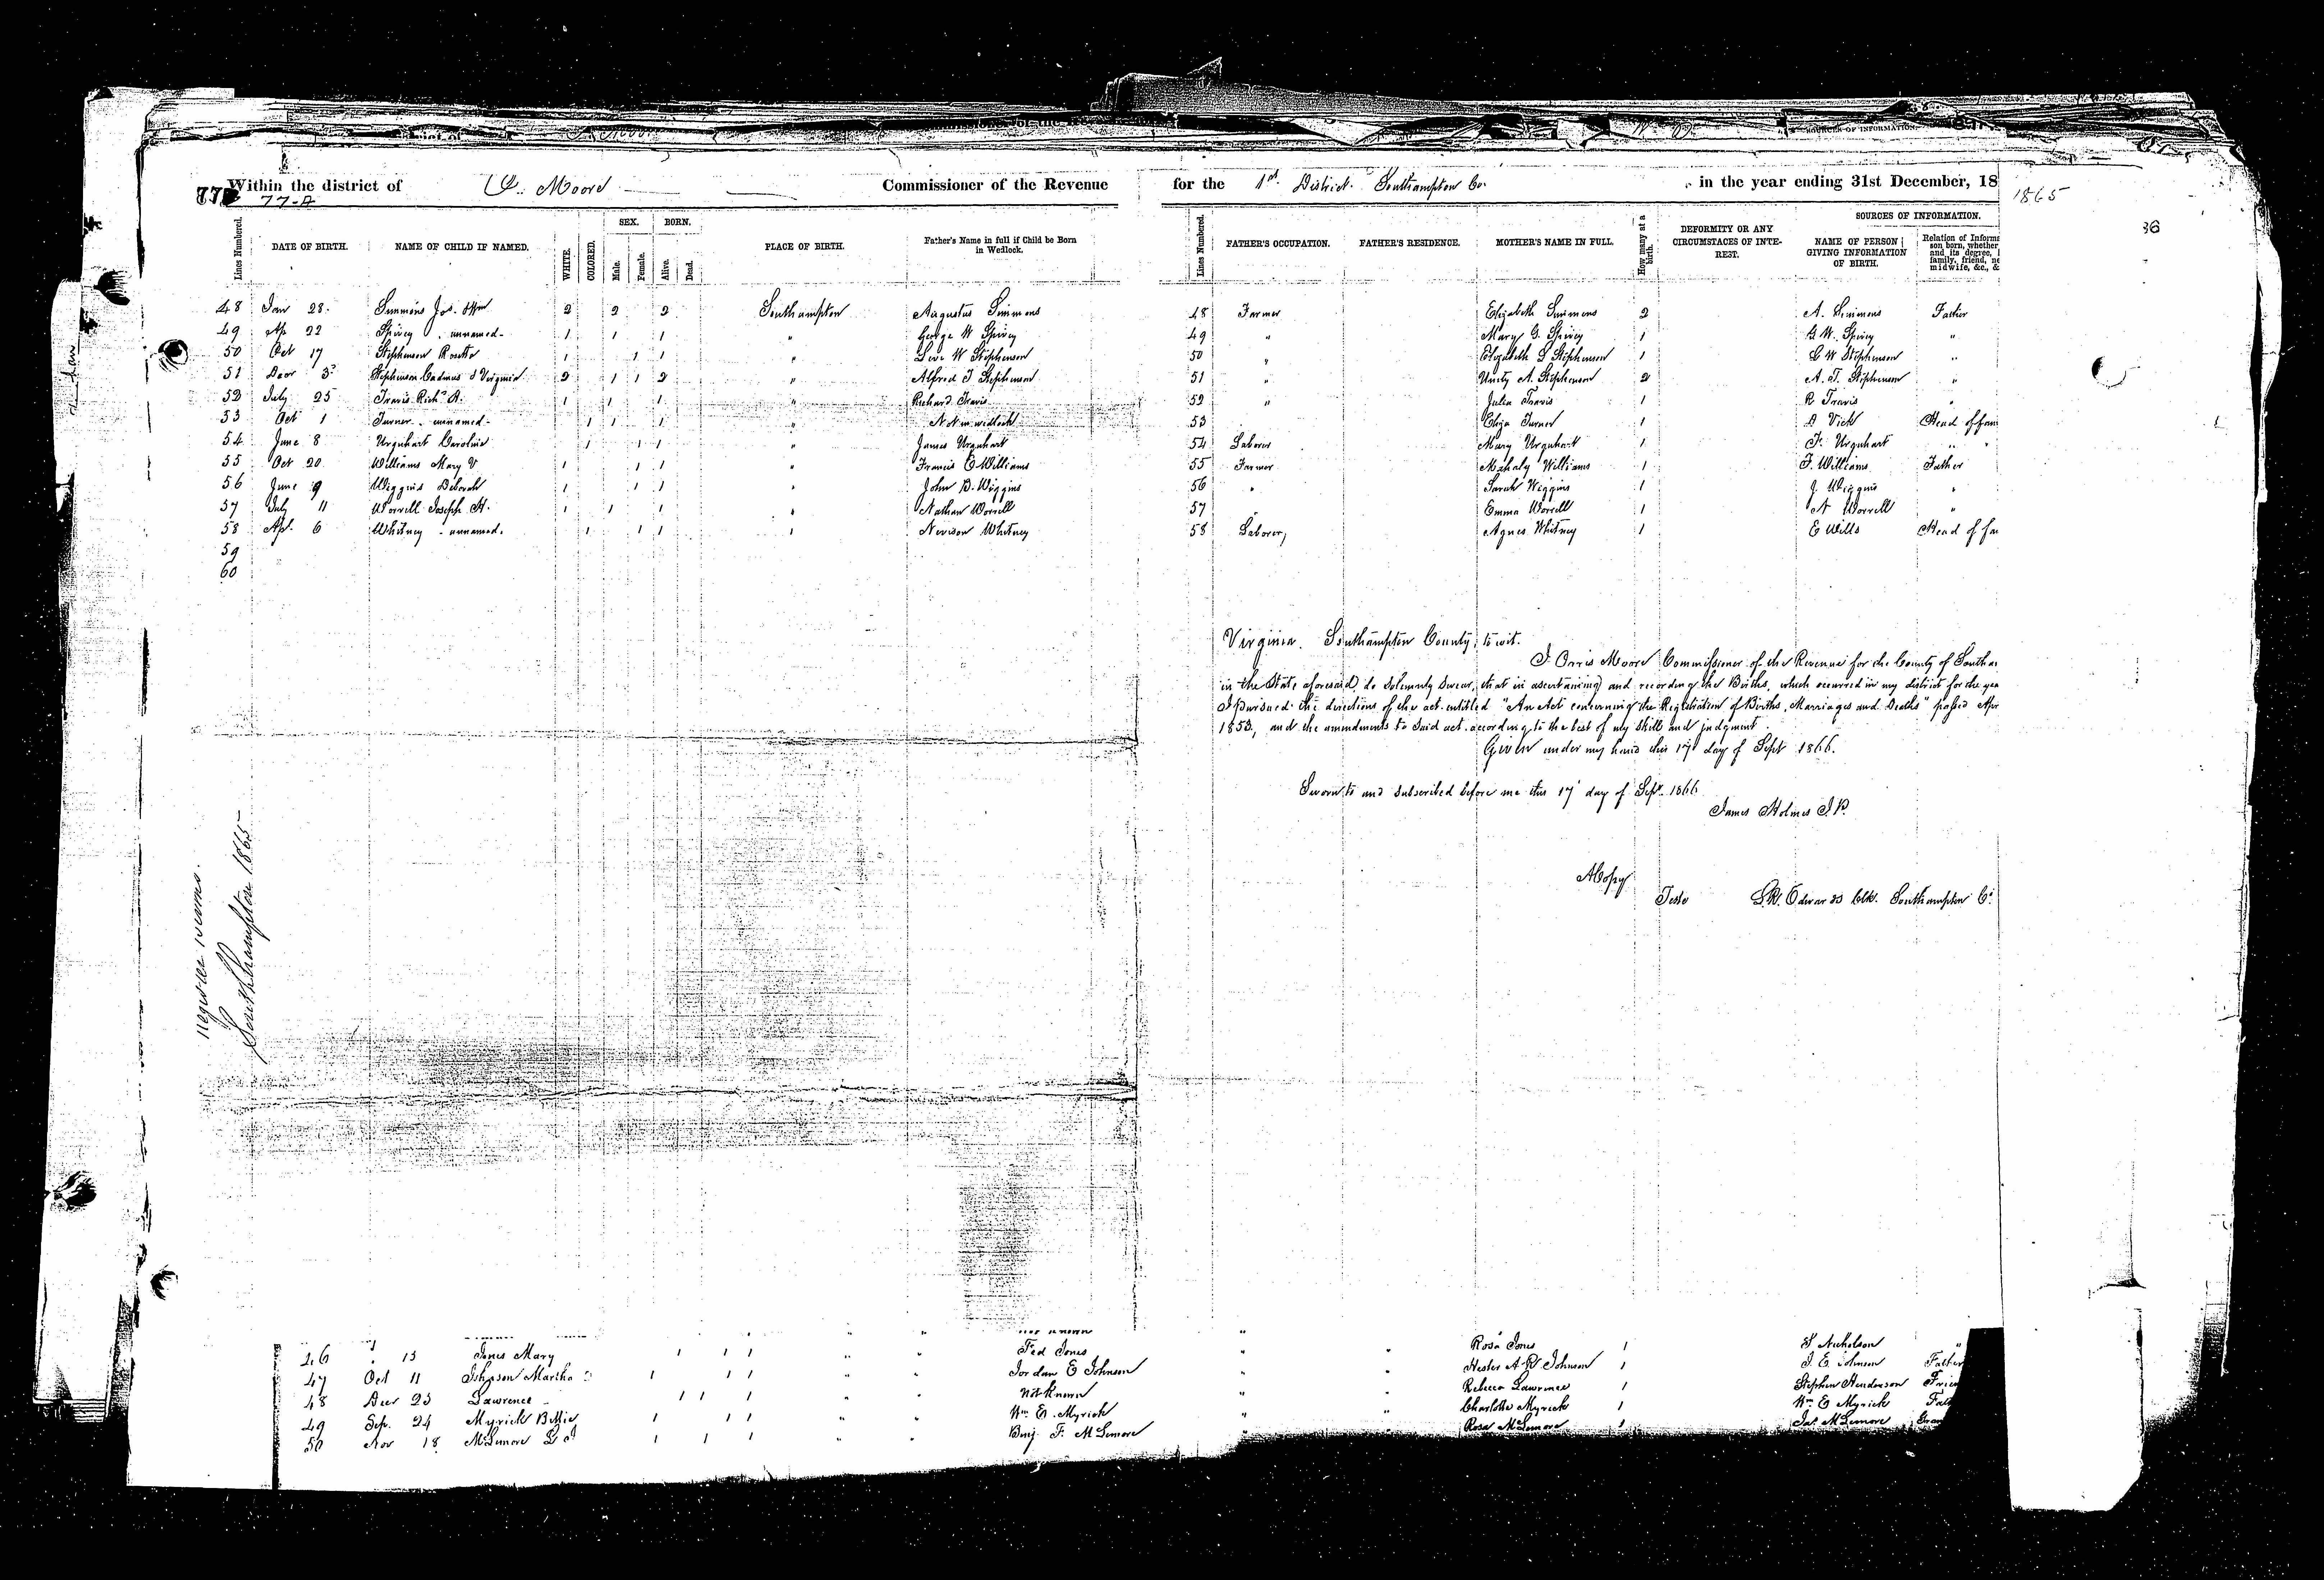 Within the district of O. Moore Commissioner of the Revenue for the 1st District Southampton Co. in the year ending 31st December, 18 1865
77 77-A
Lines Numbered. DATE OF BIRTH. NAME OF CHILD IF NAMED. WHITE. COLORED. SEX. Male. Female. BORN. Alive. Dead. PLACE OF BIRTH. Father's Name in full if Child be Born in Wedlock. Lines Numbered. FATHER'S OCCUPATION. FATHER'S RESIDENCE. MOTHER'S NAME IN FULL. How many at a birth. DEFORMITY OR ANY CIRCUMSTACES OF INTEREST. SOURCES OF INFORMATION. NAME OF PERSON GIVING INFORMATION OF BIRTH. Relation of Informa son born, whether and its degree, family, friend, ne midwife, &c., &
48 Jan 28 Simmons Jos. & Wm 2 2 2 Southampton Augustus Simmons 48 Farmer Elizabeth Simmons 2 A. Simmons Father
49 Ap 22 Spivey unnamed 1 1 1 " George W Spivey 49 " Mary G. Spivey 1 G W. Spivey "
50 Oct 17 Stephenson Rosetta 1 1 1 " Levi W Stephenson 50 " Elizabeth S Stephenson 1 L W Stephenson "
51 Decr 3 Stephenson Cadmus & Virginia 2 1 1 2 " Alfred J Stephenson 51 " Unity A. Stephenson 2 A. J. Stephenson "
52 July 25 Travis Richd A. 1 1 1 " Richard Travis 52 " Julia Travis 1 R Travis "
53 Oct 1 Turner unnamed 1 1 1 " Not in wedlock 53 Eliza Turner 1 D Vick Head of fam
54 June 8 Urquhart Caroline 1 1 1 " James Urquhart 54 Laborer Mary Urquhart 1 J. Urquhart " "
55 Oct 20 Williams Mary V. 1 1 1 " Francis E Williams 55 Farmer Mahaly Williams 1 F. Williams Father
56 June 9 Wiggins Deborah 1 1 1 " John D. Wiggins 56 " Sarah Wiggins 1 J. Wiggins "
57 July 11 Worrell Joseph H. 1 1 1 " Nathan Worrell 57 " Emma Worrell 1 N Worrell "
58 Apl. 6 Whitney unnamed. 1 1 1 " Nevison Whitney 58 Laborer Agnes Whitney 1 E Wills Head of fa
59
60
Virginia. Southampton County, to wit.
I Orris Moore Commissioner of the Revenue for the County of Southa
in the State aforesaid, do solemnly swear, that in ascertaining and recording the Births, which occurred in my district for the yea
I pursued the directions of the act entitled "An Act concerning the Registration of Births, Marriages and Deaths" passed Apr
1853, and the amendments to said act according to the best of my skill and judgment.
Given under my hand this 17 day of Sept 1866.
Sworn to and subscribed before me this 17 day of Sept. 1866
James Holmes J. P.
A Copy
Teste L.R. Edwards Clk. Southampton Co.
Southampton 1865
46 " 13 Jones Mary 1 1 1 " " Fed Jones " " Rosa Jones 1 Nicholson "
47 Oct 11 Johnson Martha 1 1 1 " " Jordan E Johnson " " Hester A R Johnson 1 J. E Johnson Father
48 Decr 23 Lawrence 1 1 1 " " Not known " " Rebecca Lawrence 1 Stephen Henderson Frien
49 Sep. 24 Myrick Bettie 1 1 1 " " Wm E. Myrick " " Charlotte Myrick 1 Wm E Myrick Fat
50 Nov 18 McLemore 1 1 1 " " Benj. F. McLemore " " Rosa McLemore 1 Jas McLemore Gran